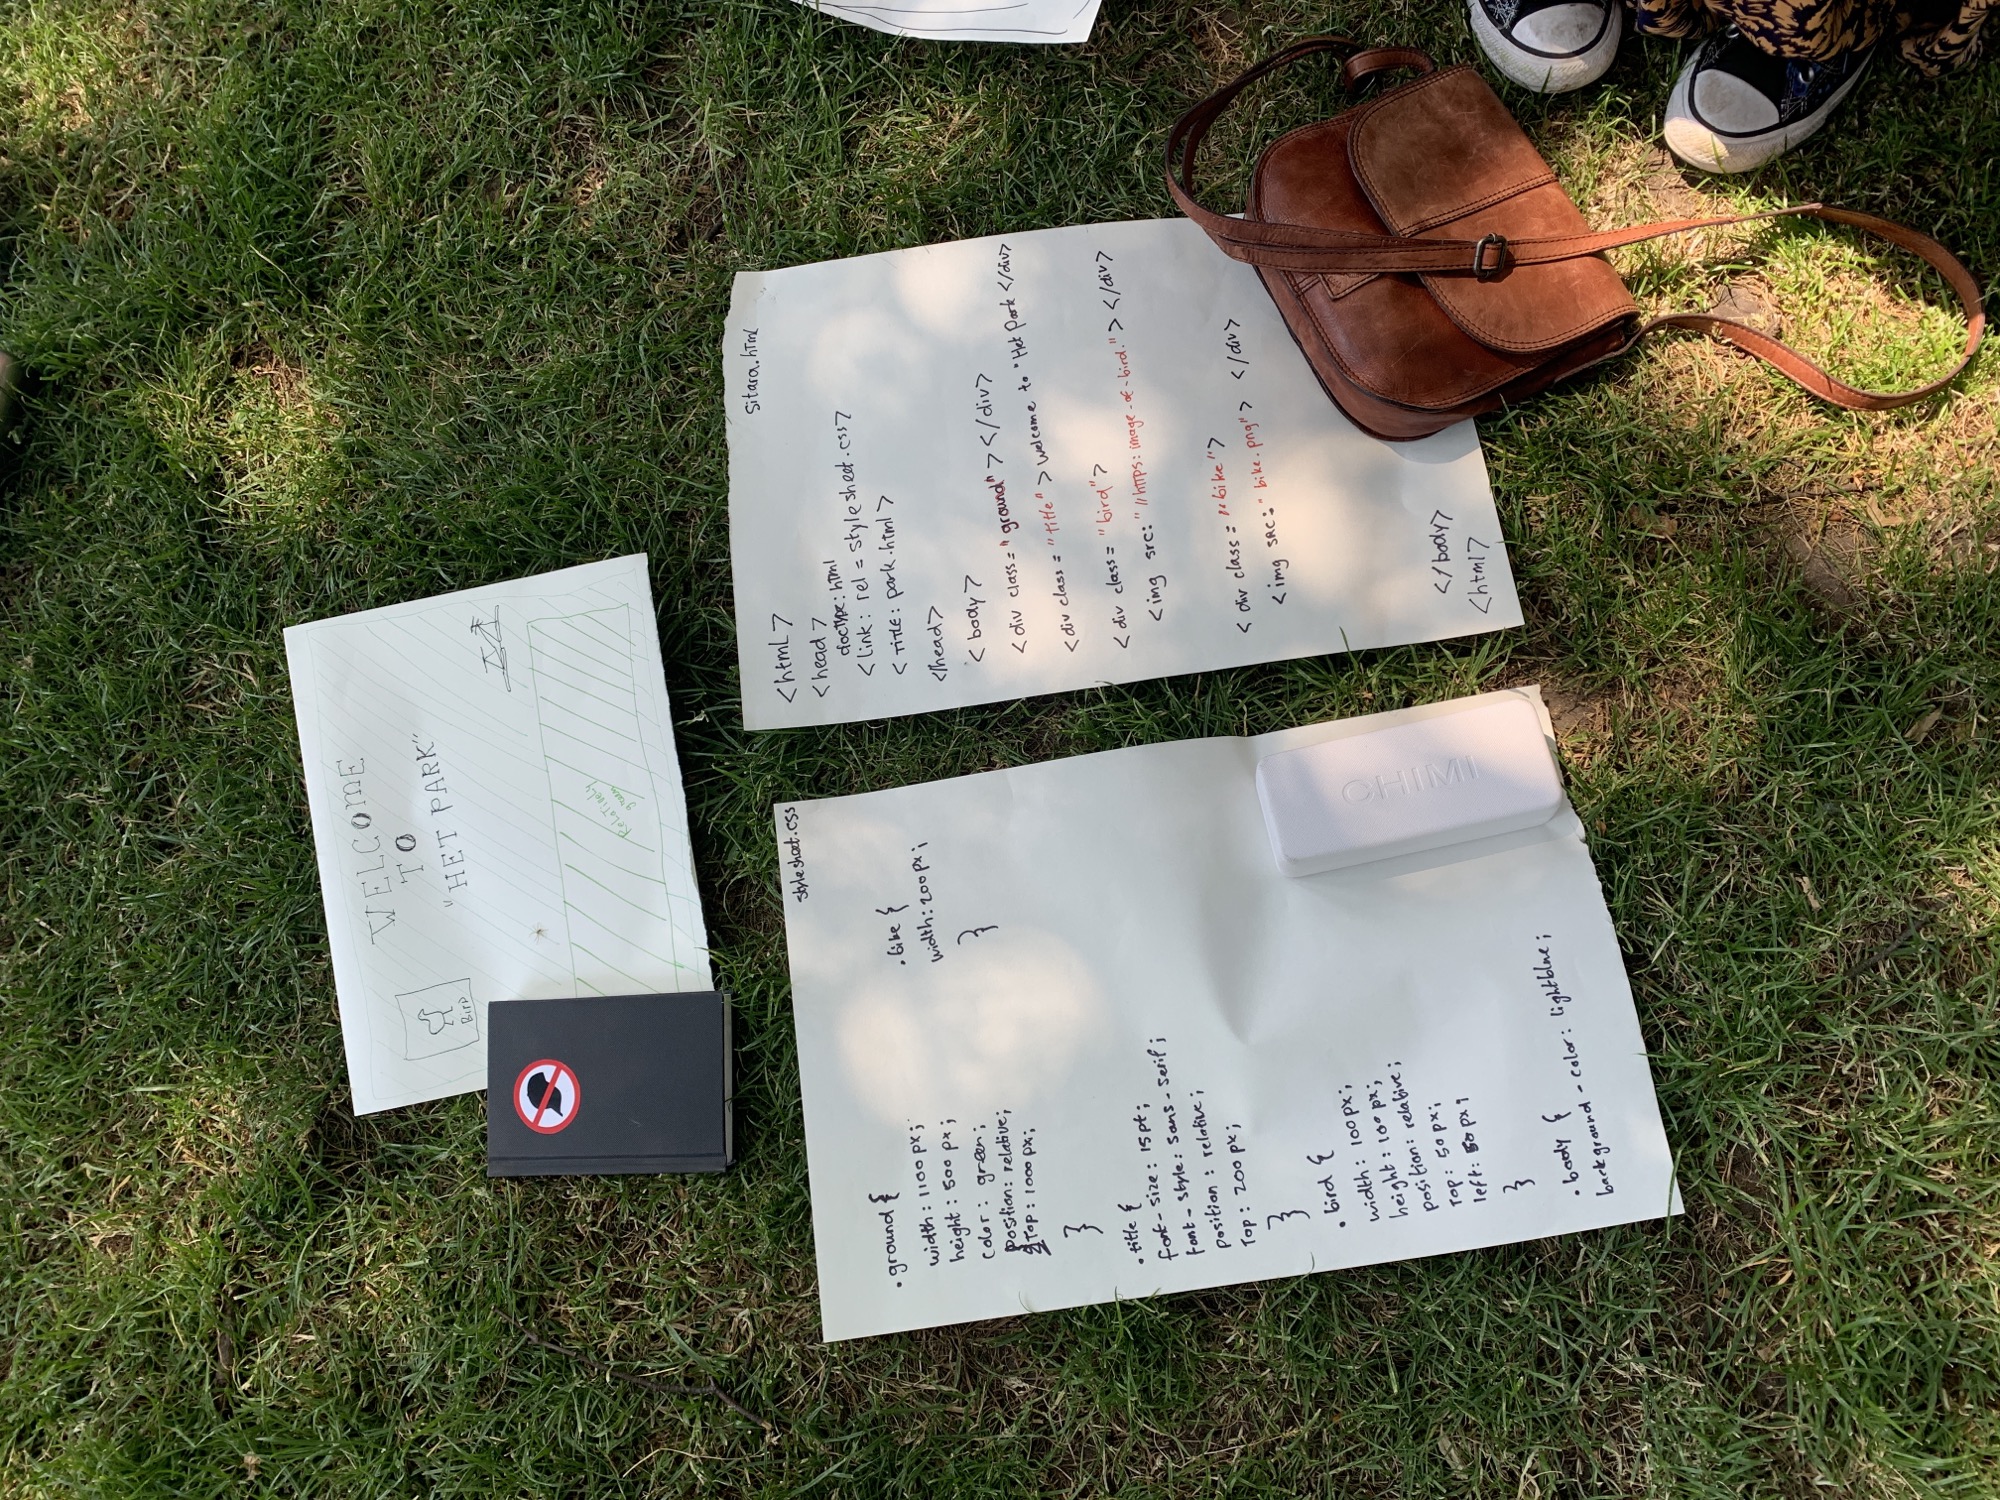 WELCOME
TO
"HET PARK"
BIRD
Relatively
green
stylesheet.css
.ground {
width: 1100 px;
height: 500 px;
color: green;
position: relative;
Top: 1000 px;
}
.title {
font-size: 15pt;
font-style: sans-serif;
position: relative;
Top: 200 px;
}
.bird {
width: 100px;
height: 100 px;
position: relative;
Top: 50 px;
left: 50 px;
}
.body {
background-color: lightblue;
.bike {
width: 200px;
}
CHIMI
Sitara.html
<html>
<head>
doctype: html
<link: rel = stylesheet.css>
<TITLE: park.html>
</head>
<body>
<div class="ground"></div>
<div class="title"> Welcome to "Het Park </div>
<div class="bird">
<img src:"//https:image-of-bird."></div>
<div class="bike">
<img src:"bike.png"> </div>
</body>
<html>